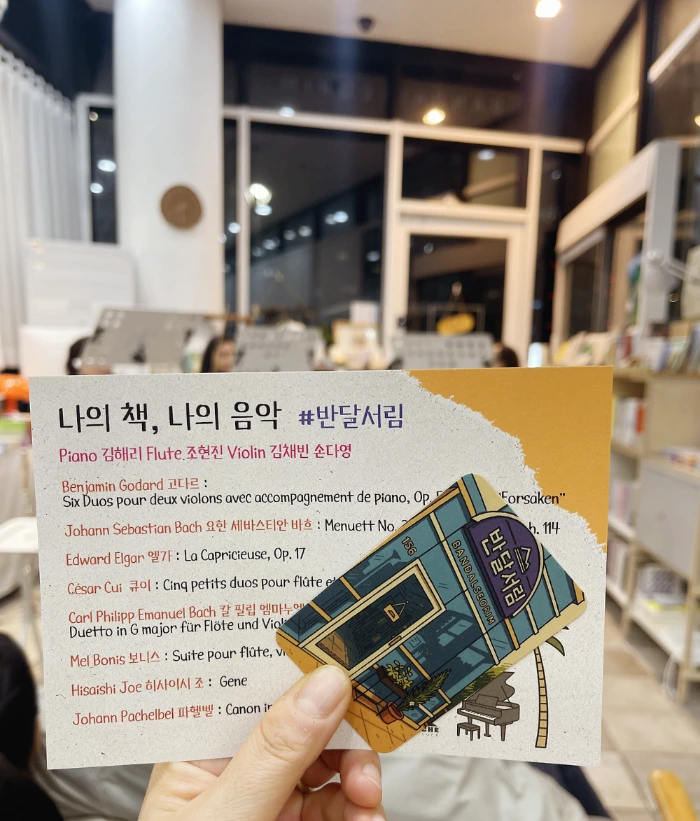 나의 책, 나의 음악 #반달서림
Piano 김해리 Flute 조현진 Violin 김채빈 손다영
Benjamin Godard 고다르 :
Six Duos pour deux violons avec accompagnement de piano, Op. "Forsaken"
Johann Sebastian Bach 요한 세바스티안 바흐 : Menuett No. h. 114
Edward Elgar 엘가 : La Capricieuse, Op. 17
César Cui 큐이 : Cinq petits duos pour flûte
Carl Philipp Emanuel Bach 칼 필립
Duetto in G major für Flöte und
Mel Bonis 보니스 : Suite pour flûte,
Hisaishi Joe 히사이시 조 : Gene
Johann Pachelbel 파헬벨 : Canon
156
BANDALSEORIM
반달서림